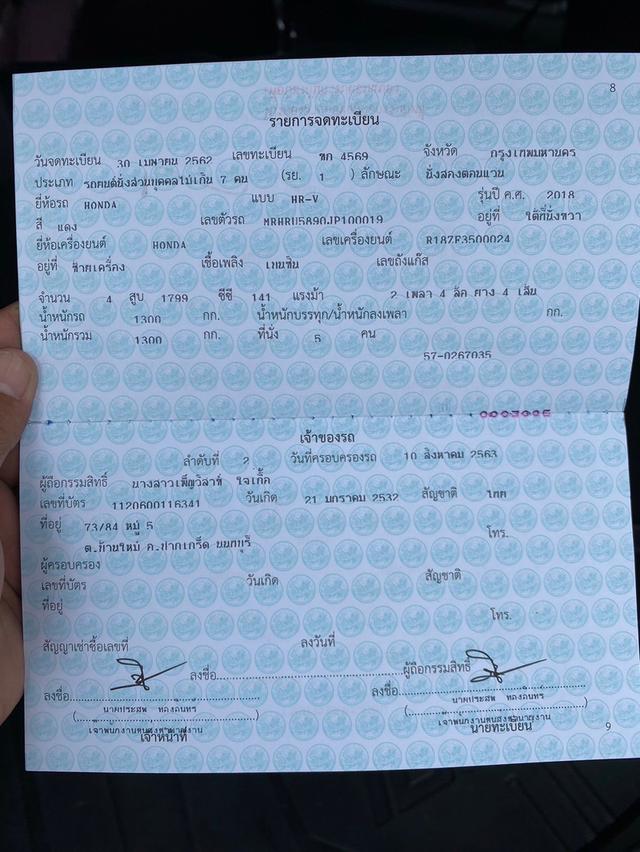 8
รายการจดทะเบียน
วันจดทะเบียน 30 เมษายน 2562 เลขทะเบียน ฆก 4569 จังหวัด กรุงเทพมหานคร
ประเภท รถยนต์นั่งส่วนบุคคลไม่เกิน 7 คน (รย. 1 ) ลักษณะ นั่งสองตอนแวน
ยี่ห้อรถ HONDA แบบ HR-V รุ่นปี ค.ศ. 2018
สี แดง เลขตัวรถ MRHRU5890JP100019 อยู่ที่ ใต้ที่นั่งขวา
ยี่ห้อเครื่องยนต์ HONDA เลขเครื่องยนต์ R18ZF3500024
อยู่ที่ ซ้ายเครื่อง เชื้อเพลิง เบนซิน เลขถังแก๊ส
จำนวน 4 สูบ 1799 ซีซี 141 แรงม้า 2 เพลา 4 ล้อ ยาง 4 เส้น
น้ำหนักรถ 1300 กก. น้ำหนักบรรทุก/น้ำหนักลงเพลา กก.
น้ำหนักรวม 1300 กก. ที่นั่ง 5 คน
57-0267035
เจ้าของรถ
ลำดับที่ 2 วันที่ครอบครองรถ 10 สิงหาคม 2563
ผู้ถือกรรมสิทธิ์ นางสาวเพ็ญวิสาข์ ใจเกื้อ
เลขที่บัตร 1120600116341 วันเกิด 21 มกราคม 2532 สัญชาติ ไทย
ที่อยู่ 73/84 หมู่ 5 โทร.
ต.บ้านใหม่ อ.ปากเกร็ด นนทบุรี
ผู้ครอบครอง
เลขที่บัตร วันเกิด สัญชาติ
ที่อยู่ โทร.
สัญญาเช่าซื้อเลขที่ ลงวันที่
ลงชื่อ ผู้ถือกรรมสิทธิ์
ลงชื่อ ลงชื่อ
นายประสพ ทองอินทร นายประสพ ทองอินทร
เจ้าพนักงานขนส่งชำนาญงาน เจ้าพนักงานขนส่งชำนาญงาน
เจ้าหน้าที่ นายทะเบียน
9